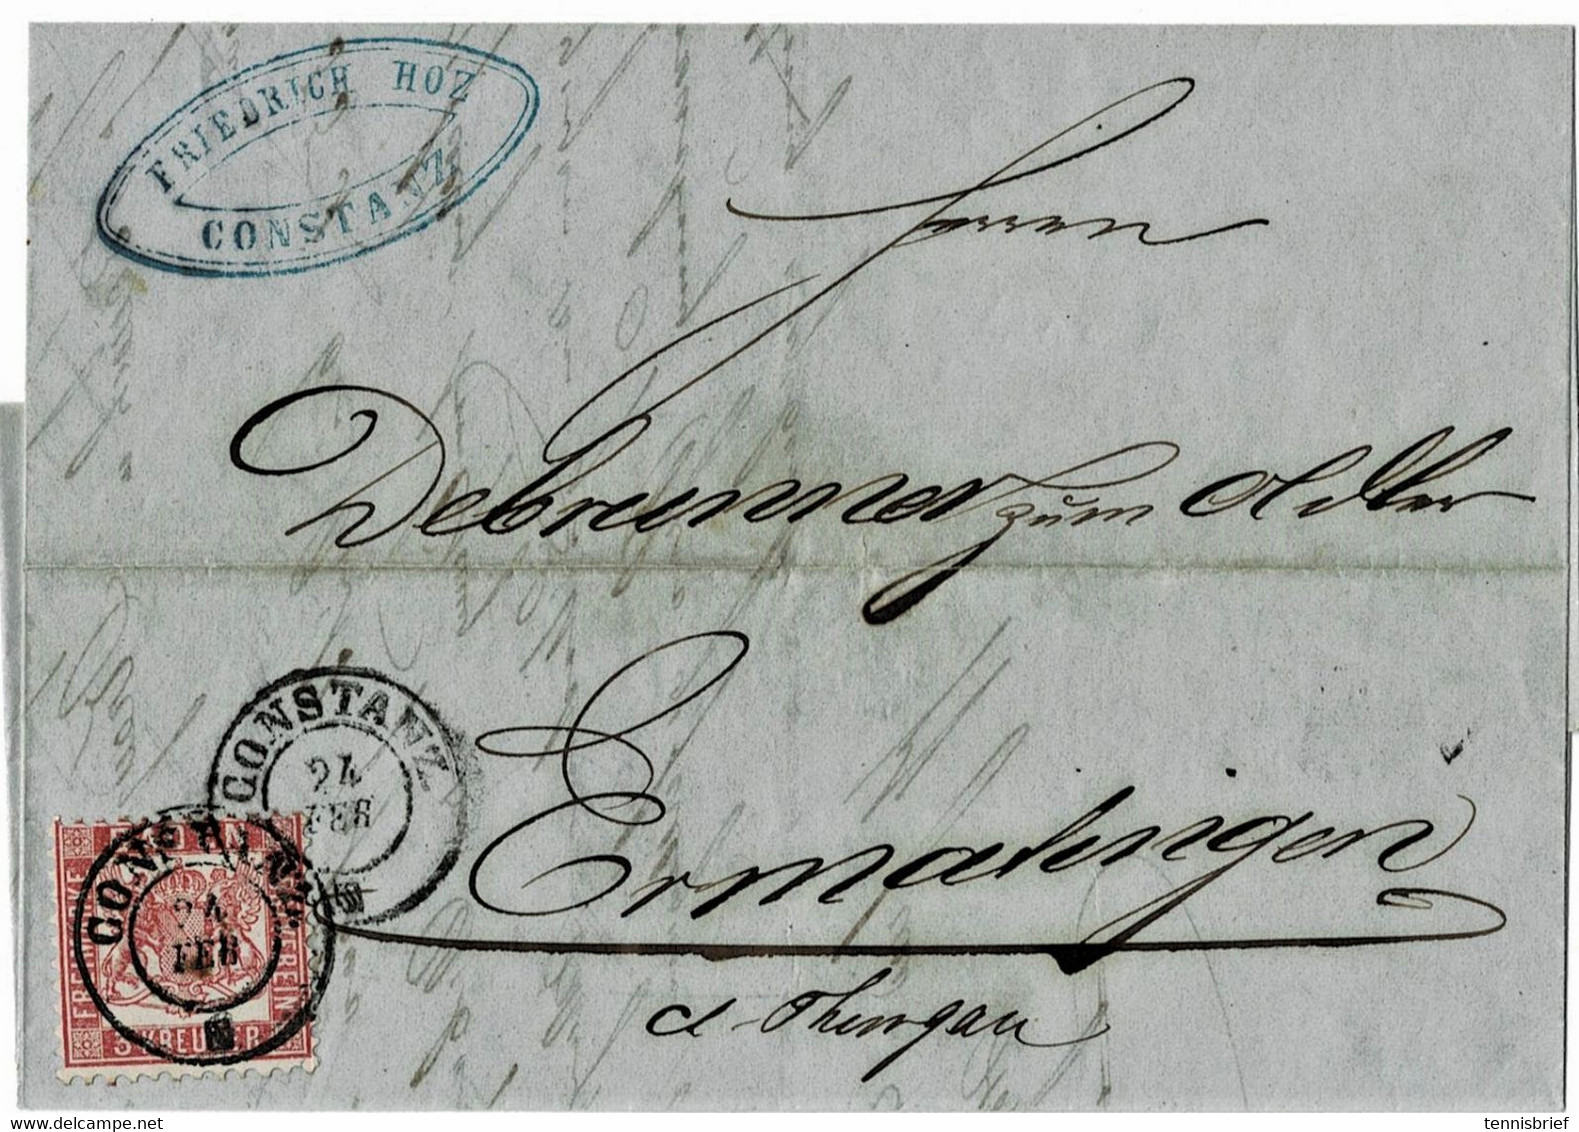 FRIEDRICH HOZ
CONSTANZ
Herren
Debrunner zum Adler
CONSTANZ
24
FEB
Ermatingen
CONSTANZ
24
FEB
BADEN
FREIMARKE
POSTVEREIN
3 KREUZER
Ct. Thurgau
tennisbrief